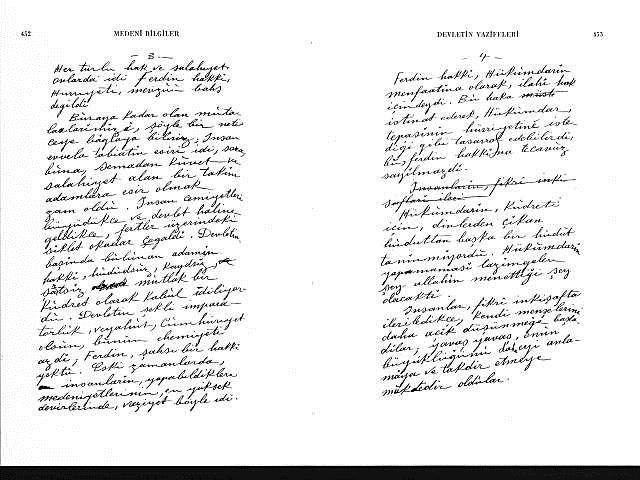 452
MEDENÎ BİLGİLER
— 3 —
Her türlü hak ve salâhiyet
onlarda idi ferdin hakkı,
Hürriyeti, mevzuu bahs
değildi
Buraya kadar olan müta-
lealarımızı, şöyle bir neti-
ceye bağlıya biliriz. İnsan
evvela tabiatın esiri idi, sonra
buna, semadan kuvvet ve
salâhiyet alan bir takım
adamlara esir olmak
zam oldu. İnsan cemiyetleri
büyüdükçe ve devlet haline
geldikçe, fertler üzerindeki
sıklet okadar çoğaldı. Devletin
başında bulunan adamın
hakkı, hudutsuz, kayıtsız,
şartsız mutlak bir
kudret olarak kabul ediliyor-
du. Devletin şekli impara-
torluk, veyahut, Cümhuriyet
olsun, bunun ehemiyeti
azdı; Ferdin, şahsi bir hakkı
yoktu. Eski zamanlarda,
insanların, yapabildikleri
medeniyetlerinin, en yüksek
devirlerinde, vaziyet böyle idi.
DEVLETİN VAZİFELERİ
453
— 4 —
Ferdin hakkı, Hükümdarın
menfaatına olarak, ilâhi hak
içindeydi. Bu haka
istinat ederek, Hükümdar,
tepasının hürriyetine iste-
diği gibi tasarruf edebilirdi,
bu, ferdin hakkına tecavüz
sayılmazdı.
İnsanların, fikri inki-
şafları ilerl
Hükümdarın, kudreti
için, dinlerden çıkan
huduttan başka bir hudut
tanınmıyordu. Hükümdarın
yapmaması lazımgelen
şey allahın menettiği şey
olacaktı.
İnsanlar, fikri inkişafta
ilerledikçe, kendi menşelerini
daha açık düşünmeğe başla-
dılar, yavaş yavaş, onun
büyüklüğünü daha iyi anla-
maya ve takdir etmeye
muktedir oldular.